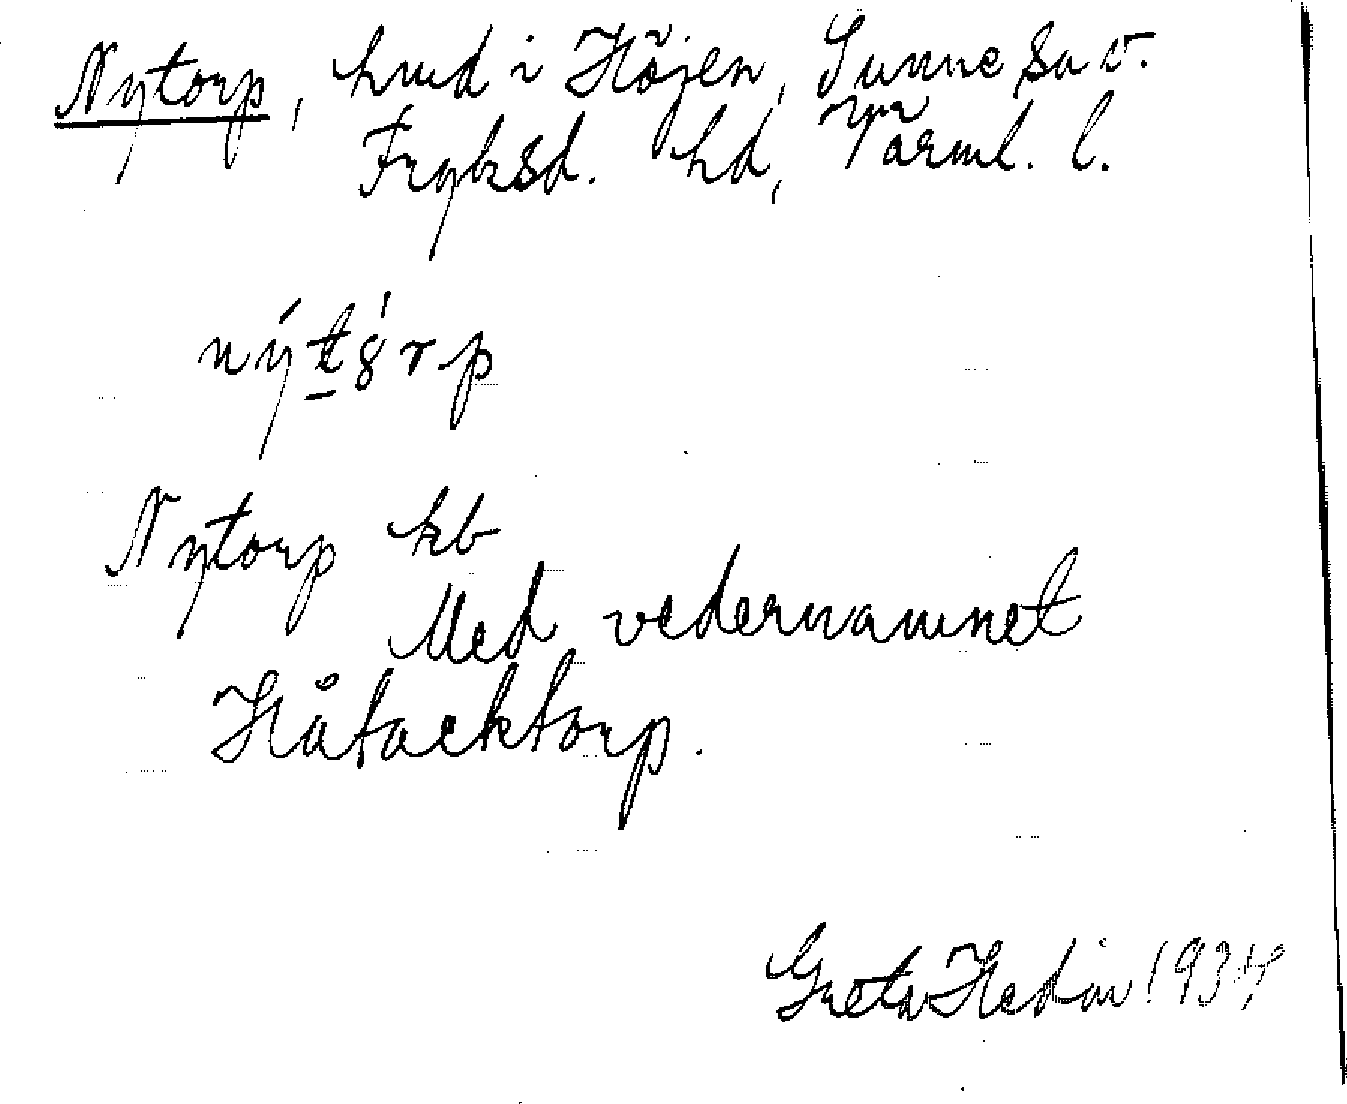 Nytorp, hmd i Höjen, Sunne sn o.
Fryksd. hd, Värml. l.
nýt8́rp
Nytorp kb
Med vedernamnet
Håtacktorp.
Greta Hedin 1934